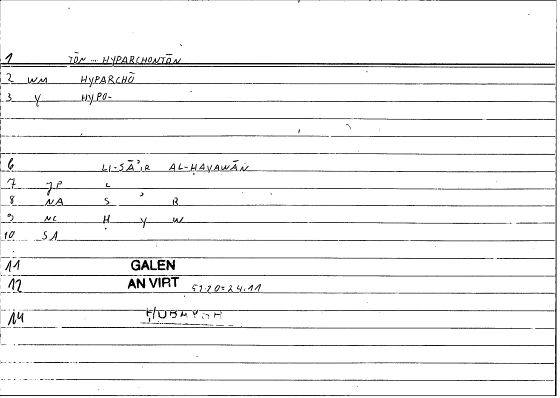 1 TŌN ... HYPARCHONTŌN
2 WM HYPARCHŌ
3 Y HYPO-
6 LI-SĀʾIR AL-ḤAYAWĀN
7 JP L
8 NA S ʾ R
9 NC Ḥ Y W
10 SA
11 GALEN
12 AN VIRT 51.20=24.11
14 ḤUBAYSH